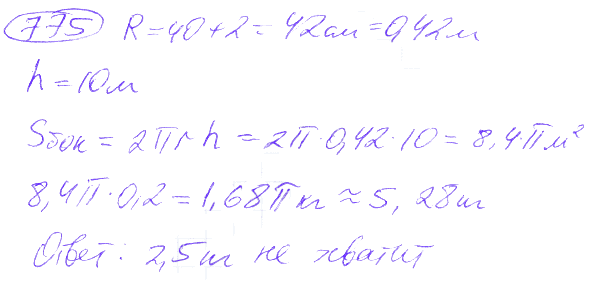 775 R = 40 + 2 = 42 см = 0,42 м
h = 10 м
Sбок = 2πrh = 2π · 0,42 · 10 = 8,4π м²
8,4π · 0,2 = 1,68π кг ≈ 5,28 кг
Ответ: 2,5 кг не хватит